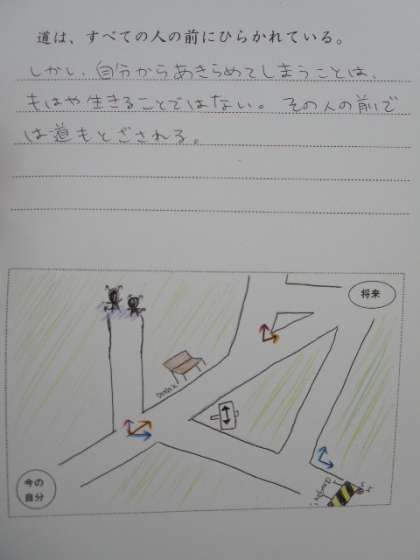 道は、すべての人の前にひらかれている。
しかし、自分からあきらめてしまうことは、
もはや生きることではない。その人の前で
は道もとざされる。
将来
今の
自分